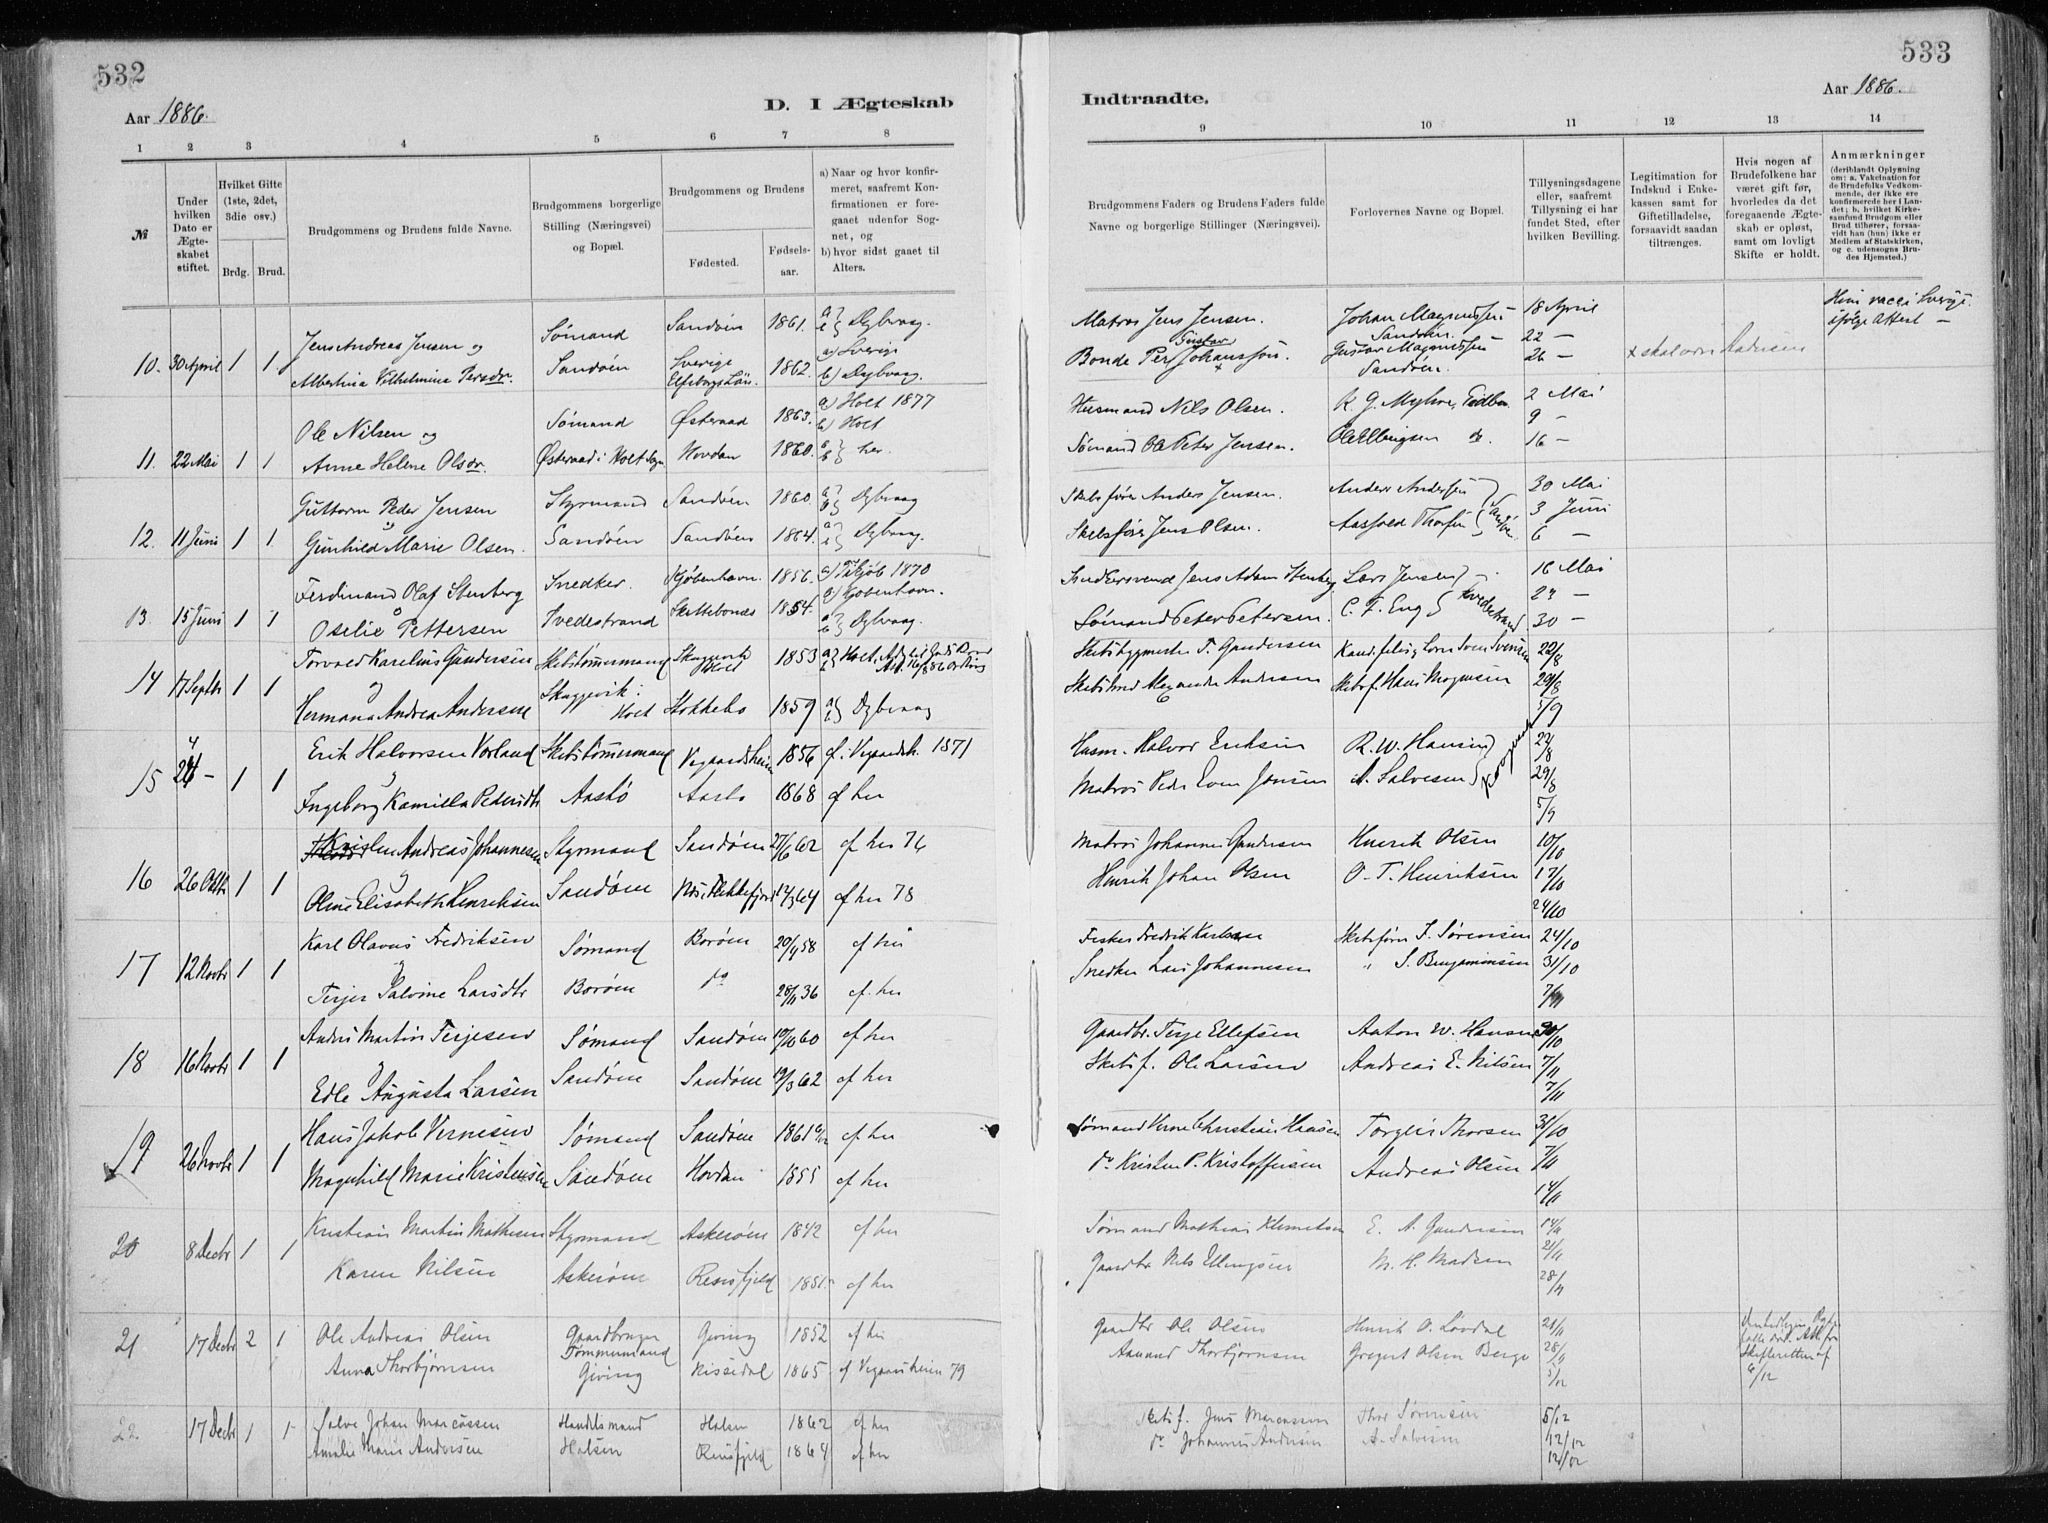 532
Aar 1886.
D. I Ægteskab
1 2 3 4 5 6 7 8
№
Under hvilken Dato er Ægteskabet stiftet.
Hvilket Gifte (1ste, 2det, 3die osv.)
Brdg. Brud.
Brudgommens og Brudens fulde Navne.
Brudgommens borgerlige Stilling (Næringsvei) og Bopæl.
Brudgommens og Brudens
Fødested.
Fødselsaar.
a) Naar og hvor konfirmeret, saafremt Konfirmationen er foregaaet udenfor Sognet, og
b) hvor sidst gaaet til Alters.
10. 30 April 1 1.
Jens Andreas Jensen og Sømand Sandøen 1861. Dybvaag.
Albertina Vilhelmina Persdr. Sandøen Sverige Elfsborgs Län. 1862. a) Sverige b) Dybvaag.
11. 22 Mai 1 1
Ole Nilsen og Sømand Østeraad 1863. a) Holt 1877 b) Holt
Anne Helene Olsdr. Østeraad i Holt Sogn Hovdan 1860. a b } her.
12. 11 Juni 1 1.
Guttorm Peder Jensen Styrmand Sandøen 1860. a b } Dybvaag
Gunhild Marie Olsen. Sandøen Sandøen 1864. Dybvaag.
13. 15 Juni 1 1
Ferdinand Olaf Stenberg Snedker. Kjøbenhavn. 1856. 1870 Kjøbenhavn.
Oselie Pettersen Tvedestrand 1854. a b } Dybvaag.
14 17 Septbr 1 1
Torvald Karelius Gundersen Skibstømmermand Holt 1853 Holt.
Hermana Andrea Andersen Skaggevik i Holt Stokkebo 1859 Dybvaag
15 24 – 1 1
Erik Halvorsen Vorland Skibstømmermand Vegaardsheim 1856 1871
Ingeborg Kamilla Pedersdtr Aastø Aastø 1868 af her
16 26 Oktbr 1 1
Kristen Andreas Johannesen Styrmand Sandøen 27/6 62 af her 76
Oline Elisabeth Henriksen Sandøen 14/3 64 af her 78
17 12 Novbr 1 1
Karl Olavus Fredriksen Sømand Borøen 20/9 58 af her
Terjer Salvine Larsdtr Borøen do 28/11 36 af her
18 16 Novbr 1 1
Anders Martin Terjesen Sømand Sandøen 19/10 60 af her
Edle Augusta Larsen Sandøen Sandøen 19/3 62 af her
19 26 Novbr 1 1
Hans Jakob Vernesen Sømand Sandøen 1861 af her
Magnhild Marie Kristensen Sandøen Hovdan 1855 af her
20 8 Decbr 1 1
Kristian Martin Mathisen Styrmand Askerøen 1842 af her
Karen Nilsen Askerøen Resisfjeld 1851 af her
21 17 Decbr 2 1
Ole Andreas Olsen Gaardbruger Tømmermand Giving 1852 af her
Anna Thorbjørnsen Giving 1865 af Vegaardsheim 79
22. 17 Decbr 1 1
Salve Johan Marcussen Handelsmand Halsen 1862 af her
Amalie Marie Andersen Halsen Rensfjeld 1864 af her
533
Aar 1886.
Indtraadte.
9 10 11 12 13 14
Brudgommens Faders og Brudens Faders fulde Navne og borgerlige Stillinger (Næringsvei).
Forlovernes Navne og Bopæl.
Tillysningsdagene eller, saafremt Tillysning ei har fundet Sted, efter hvilken Bevilling.
Legitimation for Indskud i Enkekassen samt for Giftetilladelse, forsaavidt saadan tiltrænges.
Hvis nogen af Brudefolkene har været gift før, hvorledes da det foregaaende Ægteskab er opløst, samt om lovligt Skifte er holdt.
Anmærkninger (deriblandt Oplysning om: a. Vakcination for de Brudefolks Vedkommende, der ikke ere konfirmerede her i Landet; b. hvilket Kirkesamfund Brudgom eller Brud tilhører, forsaavidt han (hun) ikke er Medlem af Statskirken, og c. udensogns Brudes Hjemsted.)
Matros Jens Jensen. Johan Magnussen Sandøen 18 April Hun vacc. i Sverige ifølge Attest –
22 –
Bonde Per Gustav Johansson. Gustav Magnussen Sandøen. 26 –
Husmand Nils Olsen. K. G. Myhre, 2 Mai
9 –
Sømand Ole Peter Jensen. Ole Ellingsen do. 16 –
Skibsfører Anders Jensen. Anders Andersen 30 Mai
3 Juni
Skibsfører Jens Olsen. 6 –
Snedkersvend Jens Adam Stenberg Lars Jensen 16 Mai
23 –
Sømand Peter Petersen. C. F. Eng Tvedestrand 30 –
Skibsbygmester T. Gundersen Sven Svensen 22/8
Alexander Andersen Skibsf. Hans Mogensen 29/8
5/9
Husm. Halvor Eriksen R. W. Hansen 22/8
Matros Peder Even Jensen A. Salvesen 29/8
5/9
Matros Johannes Gundersen Henrik Olsen 10/10
Henrik Johan Olsen O. T. Henriksen 17/10
24/10
Fisker Fredrik Karlsen Skibsfører T. Sørensen 24/10
Snedker Lars Johannesen " S. Benjaminsen 31/10
7/11
Gaardbr. Terje Ellefsen Anton W. Hansen
Skibsf. Ole Larsen Andreas E. Nilsen 7/11
7/11
Sømand Verne Christian Hansen Torgeir Thorsen 31/10
do Kristen P. Kristoffersen Andreas Olsen 7/11
14/11
Sømand Mathias Klemetsen E. A. Gundersen 14/11
21/11
Gaardbr Nils Ellingsen M. H. Madsen 28/11
Gaardbr Ole Olsen Henrik O. Løvdal 21/11
Aanand Thorbjørnsen Gregert Olsen Berge 28/11
5/12
Skifteretten af 6/12
Skibsf. Jens Marcussen Thor Sørensen 5/12
do Johannes Andersen A. Salvesen 12/12
12/12